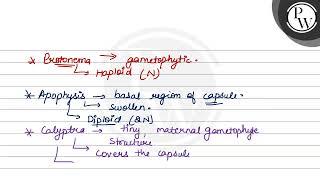 PW
* Protonema → gametophytic.
↳ Haploid (N)
* Apophysis → basal region of capsule.
↳ swollen.
↳ Diploid (2N)
* Calyptra → tiny, maternal gametophyte
↳ structure
↳ Covers the capsule